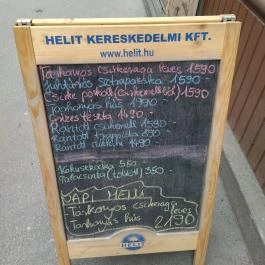 HELIT KERESKEDELMI KFT.
www.helit.hu
Tárkonyos csirkeragu leves 1590
Juhtúrós sztrapacska 1590
Csirke pörkölt (csirkemellből) 1590
Tárkonyos hús 1990
Grízes tészta 1490
Rántott csirkemell 1590
Rántott
Rántott
Kókuszkocka 550
Palacsinta (töltött) 350
NAPI MENÜ
Tárkonyos csirkeragu leves
Tárkonyos hús 2190
HELIT